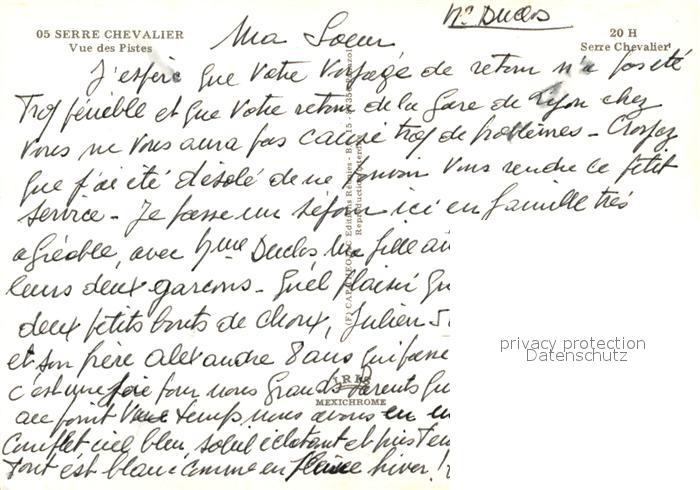 Mr Duclos
05 SERRE CHEVALIER
Vue des Pistes
20 H
Serre Chevalier
Ma Soeur
J'espère que votre voyage de retour n'a pas été
trop pénible et que votre retour de la gare de Lyon chez
vous ne vous aura pas causé trop de problèmes - Croyez
que j'ai été désolé de ne pouvoir vous rendre ce petit
service - Je passe un séjour ici en famille très
agréable, avec Mme Duclos ma fille
leurs deux garcons - Quel plaisir
deux petits bouts de choux, Julien 5
et son frère alexandre 8 ans
c'est une joie pour nous Grands Parents
au point temps nous avons eu un
complet ciel bleu, soleil éclatant et puis
tout est blanc comme en plein hiver !
IRIS
MEXICHROME
privacy protection
Datenschutz